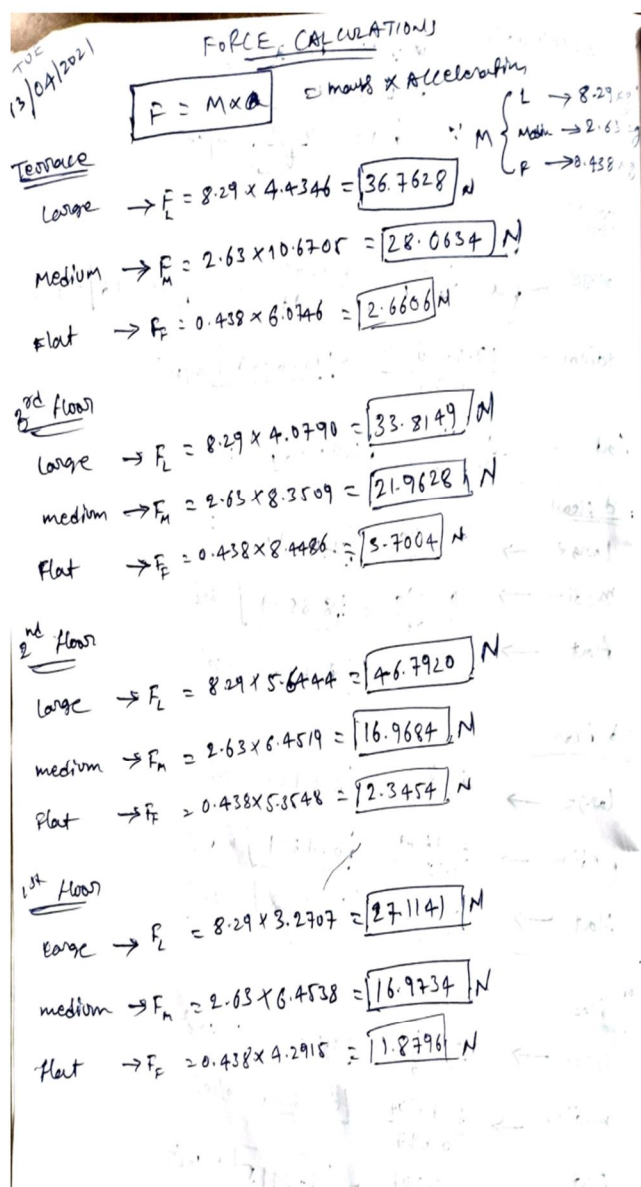 TUE
13/04/2021
FORCE CALCULATIONS
F = M×a = mass × Acceleration
∵ M { L → 8.29
→ 2.63
F → 0.438
Terrace
Large → F_L = 8.29 × 4.4346 = 36.7628 N
Medium → F_M = 2.63 × 10.6705 = 28.0634 N
Flat → F_F = 0.438 × 6.0746 = 2.6606 N
3rd floor
Large → F_L = 8.29 × 4.0790 = 33.8149 N
medium → F_M = 2.63 × 8.3509 = 21.9628 N
Flat → F_F = 0.438 × 8.4486 = 3.7004 N
2nd floor
Large → F_L = 8.29 × 5.6444 = 46.7920 N
medium → F_M = 2.63 × 6.4519 = 16.9684 N
Flat → F_F = 0.438 × 5.3548 = 2.3454 N
1st floor
Large → F_L = 8.29 × 3.2707 = 27.1141 N
medium → F_M = 2.63 × 6.4538 = 16.9734 N
Flat → F_F = 0.438 × 4.2915 = 1.8796 N